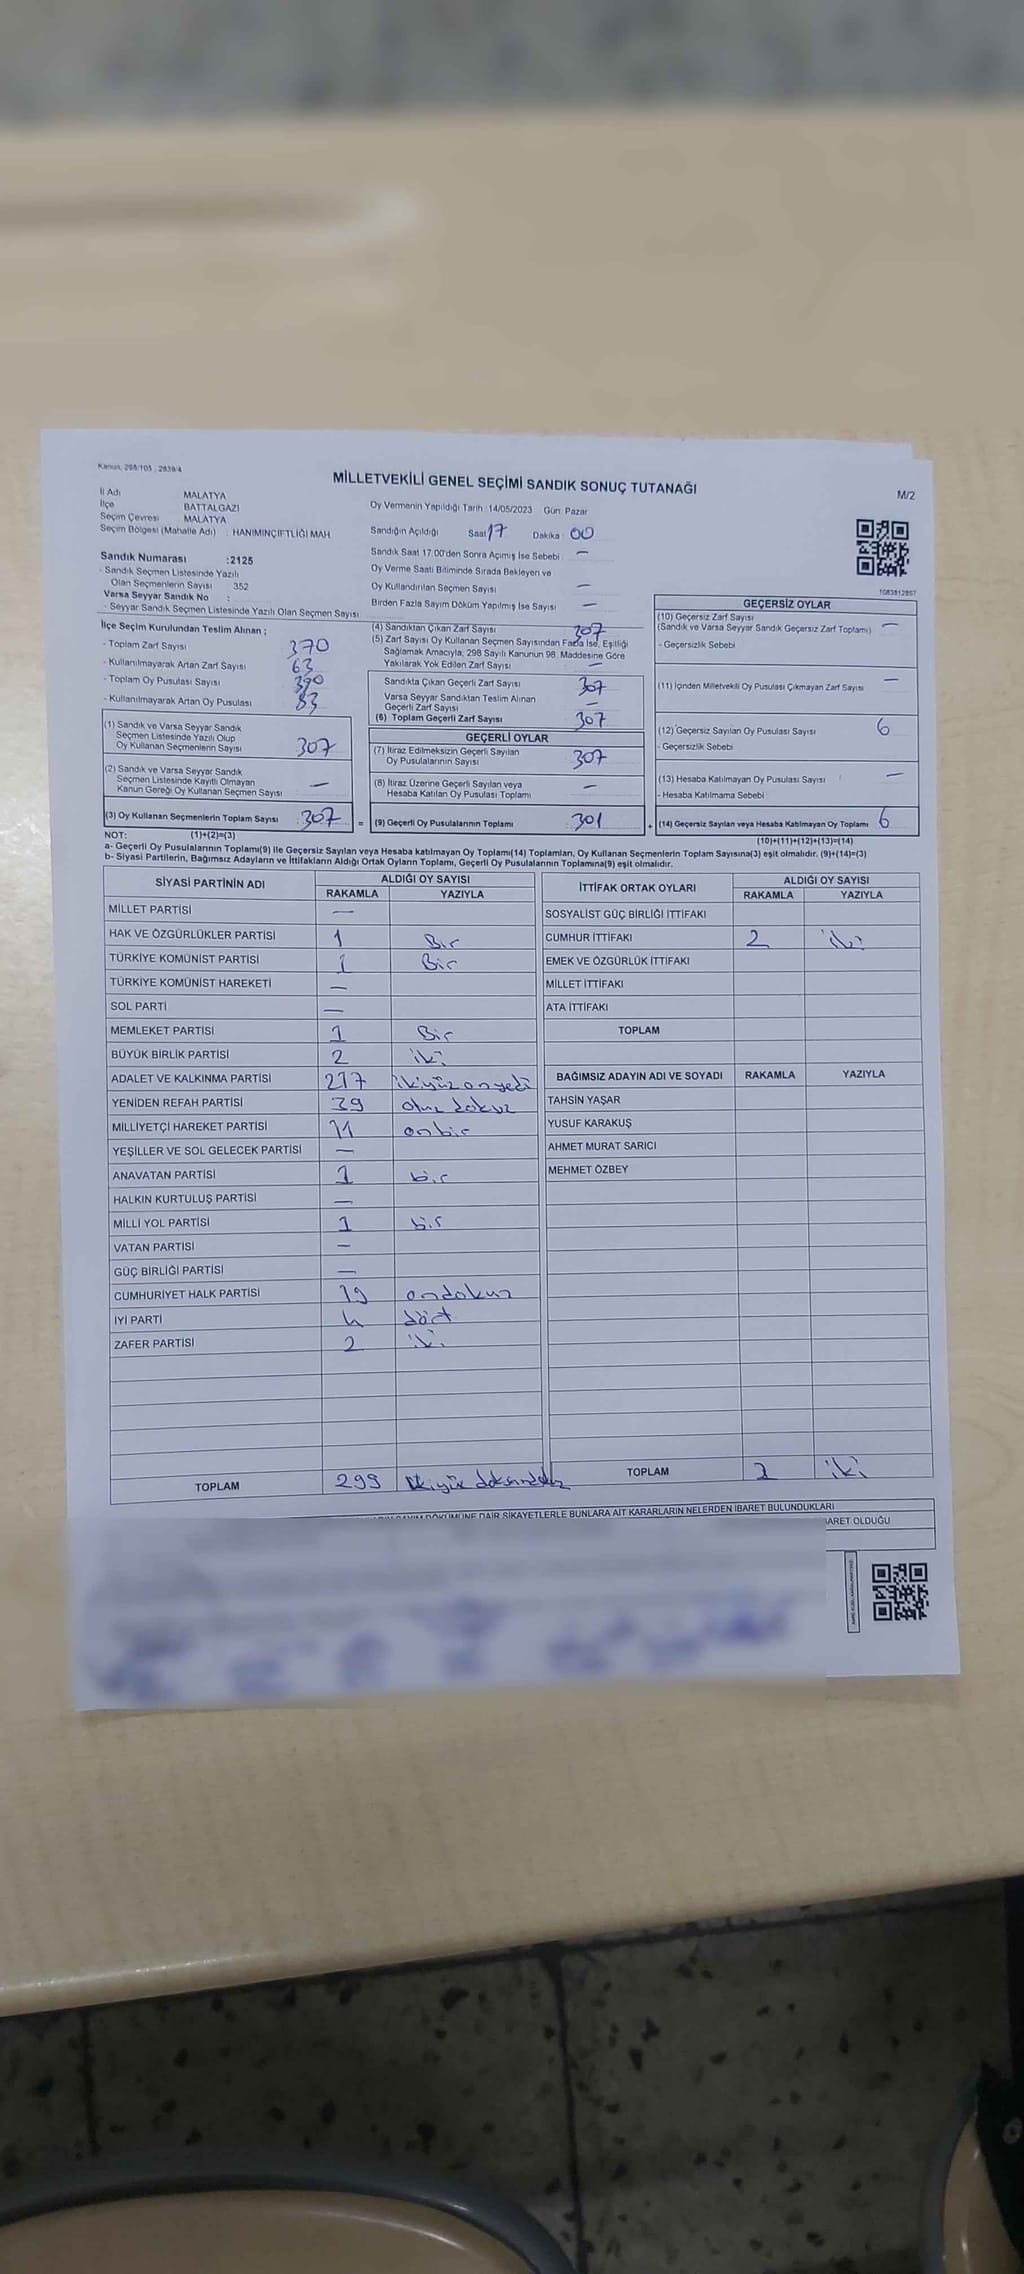 Kanun, 298/105 , 2839/4
MİLLETVEKİLİ GENEL SEÇİMİ SANDIK SONUÇ TUTANAĞI
M/2
İl Adı MALATYA
İlçe BATTALGAZI
Seçim Çevresi MALATYA
Seçim Bölgesi (Mahalle Adı) : HANIMINÇIFTLIĞI MAH.
Oy Vermenin Yapıldığı Tarih : 14/05/2023 Gün: Pazar
Sandığın Açıldığı Saat 17 Dakika : 00
Sandık Saat 17.00'den Sonra Açımış İse Sebebi : —
Oy Verme Saati Bitiminde Sırada Bekleyen ve
Oy Kullandırılan Seçmen Sayısı —
Birden Fazla Sayım Döküm Yapılmış İse Sayısı —
1083812857
Sandık Numarası :2125
- Sandık Seçmen Listesinde Yazılı
Olan Seçmenlerin Sayısı 352
Varsa Seyyar Sandık No :
- Seyyar Sandık Seçmen Listesinde Yazılı Olan Seçmen Sayısı
İlçe Seçim Kurulundan Teslim Alınan ;
- Toplam Zarf Sayısı 370
- Kullanılmayarak Artan Zarf Sayısı 63
- Toplam Oy Pusulası Sayısı 390
- Kullanılmayarak Artan Oy Pusulası 83
(1) Sandık ve Varsa Seyyar Sandık
Seçmen Listesinde Yazılı Olup
Oy Kullanan Seçmenlerin Sayısı 307
(2) Sandık ve Varsa Seyyar Sandık
Seçmen Listesinde Kayıtlı Olmayan
Kanun Gereği Oy Kullanan Seçmen Sayısı —
(3) Oy Kullanan Seçmenlerin Toplam Sayısı : 307 =
(4) Sandıktan Çıkan Zarf Sayısı 307
(5) Zarf Sayısı Oy Kullanan Seçmen Sayısından Fazla İse, Eşitliği
Sağlamak Amacıyla, 298 Sayılı Kanunun 98. Maddesine Göre
Yakılarak Yok Edilen Zarf Sayısı —
Sandıkta Çıkan Geçerli Zarf Sayısı 307
Varsa Seyyar Sandıktan Teslim Alınan
Geçerli Zarf Sayısı —
(6) Toplam Geçerli Zarf Sayısı 307
GEÇERLİ OYLAR
(7) İtiraz Edilmeksizin Geçerli Sayılan
Oy Pusulalarının Sayısı 307
(8) İtiraz Üzerine Geçerli Sayılan veya
Hesaba Katılan Oy Pusulası Toplamı —
(9) Geçerli Oy Pusulalarının Toplamı 301 +
GEÇERSİZ OYLAR
(10) Geçersiz Zarf Sayısı
(Sandık ve Varsa Seyyar Sandık Geçersiz Zarf Toplamı) —
- Geçersizlik Sebebi
(11) İçinden Milletvekili Oy Pusulası Çıkmayan Zarf Sayısı —
(12) Geçersiz Sayılan Oy Pusulası Sayısı 6
- Geçersizlik Sebebi
(13) Hesaba Katılmayan Oy Pusulası Sayısı —
- Hesaba Katılmama Sebebi
(14) Geçersiz Sayılan veya Hesaba Katılmayan Oy Toplamı 6
NOT: (1)+(2)=(3) (10)+(11)+(12)+(13)=(14)
a- Geçerli Oy Pusulalarının Toplamı(9) ile Geçersiz Sayılan veya Hesaba katılmayan Oy Toplamı(14) Toplamları, Oy Kullanan Seçmenlerin Toplam Sayısına(3) eşit olmalıdır. (9)+(14)=(3)
b- Siyasi Partilerin, Bağımsız Adayların ve İttifakların Aldığı Ortak Oyların Toplamı, Geçerli Oy Pusulalarının Toplamına(9) eşit olmalıdır.
SİYASİ PARTİNİN ADI ALDIĞI OY SAYISI
RAKAMLA YAZIYLA
MİLLET PARTİSİ —
HAK VE ÖZGÜRLÜKLER PARTİSİ 1 Bir
TÜRKİYE KOMÜNİST PARTİSİ 1 Bir
TÜRKİYE KOMÜNİST HAREKETİ —
SOL PARTİ —
MEMLEKET PARTİSİ 1 Bir
BÜYÜK BİRLİK PARTİSİ 2 iki
ADALET VE KALKINMA PARTİSİ 217 ikiyüzonyedi
YENİDEN REFAH PARTİSİ 39 otuz dokuz
MİLLİYETÇİ HAREKET PARTİSİ 11 onbir
YEŞİLLER VE SOL GELECEK PARTİSİ —
ANAVATAN PARTİSİ 1 bir
HALKIN KURTULUŞ PARTİSİ —
MİLLİ YOL PARTİSİ 1 bir
VATAN PARTİSİ —
GÜÇ BİRLİĞİ PARTİSİ —
CUMHURİYET HALK PARTİSİ 19 ondokuz
İYİ PARTİ 4 dört
ZAFER PARTİSİ 2 iki
TOPLAM 299
İTTİFAK ORTAK OYLARI ALDIĞI OY SAYISI
RAKAMLA YAZIYLA
SOSYALİST GÜÇ BİRLİĞİ İTTİFAKI
CUMHUR İTTİFAKI 2 iki
EMEK VE ÖZGÜRLÜK İTTİFAKI
MİLLET İTTİFAKI
ATA İTTİFAKI
TOPLAM
BAĞIMSIZ ADAYIN ADI VE SOYADI RAKAMLA YAZIYLA
TAHSİN YAŞAR
YUSUF KARAKUŞ
AHMET MURAT SARICI
MEHMET ÖZBEY
TOPLAM 2 iki
DÖKÜMÜNE DAİR ŞİKAYETLERLE BUNLARA AİT KARARLARIN NELERDEN İBARET BULUNDUKLARI
BARET OLDUĞU